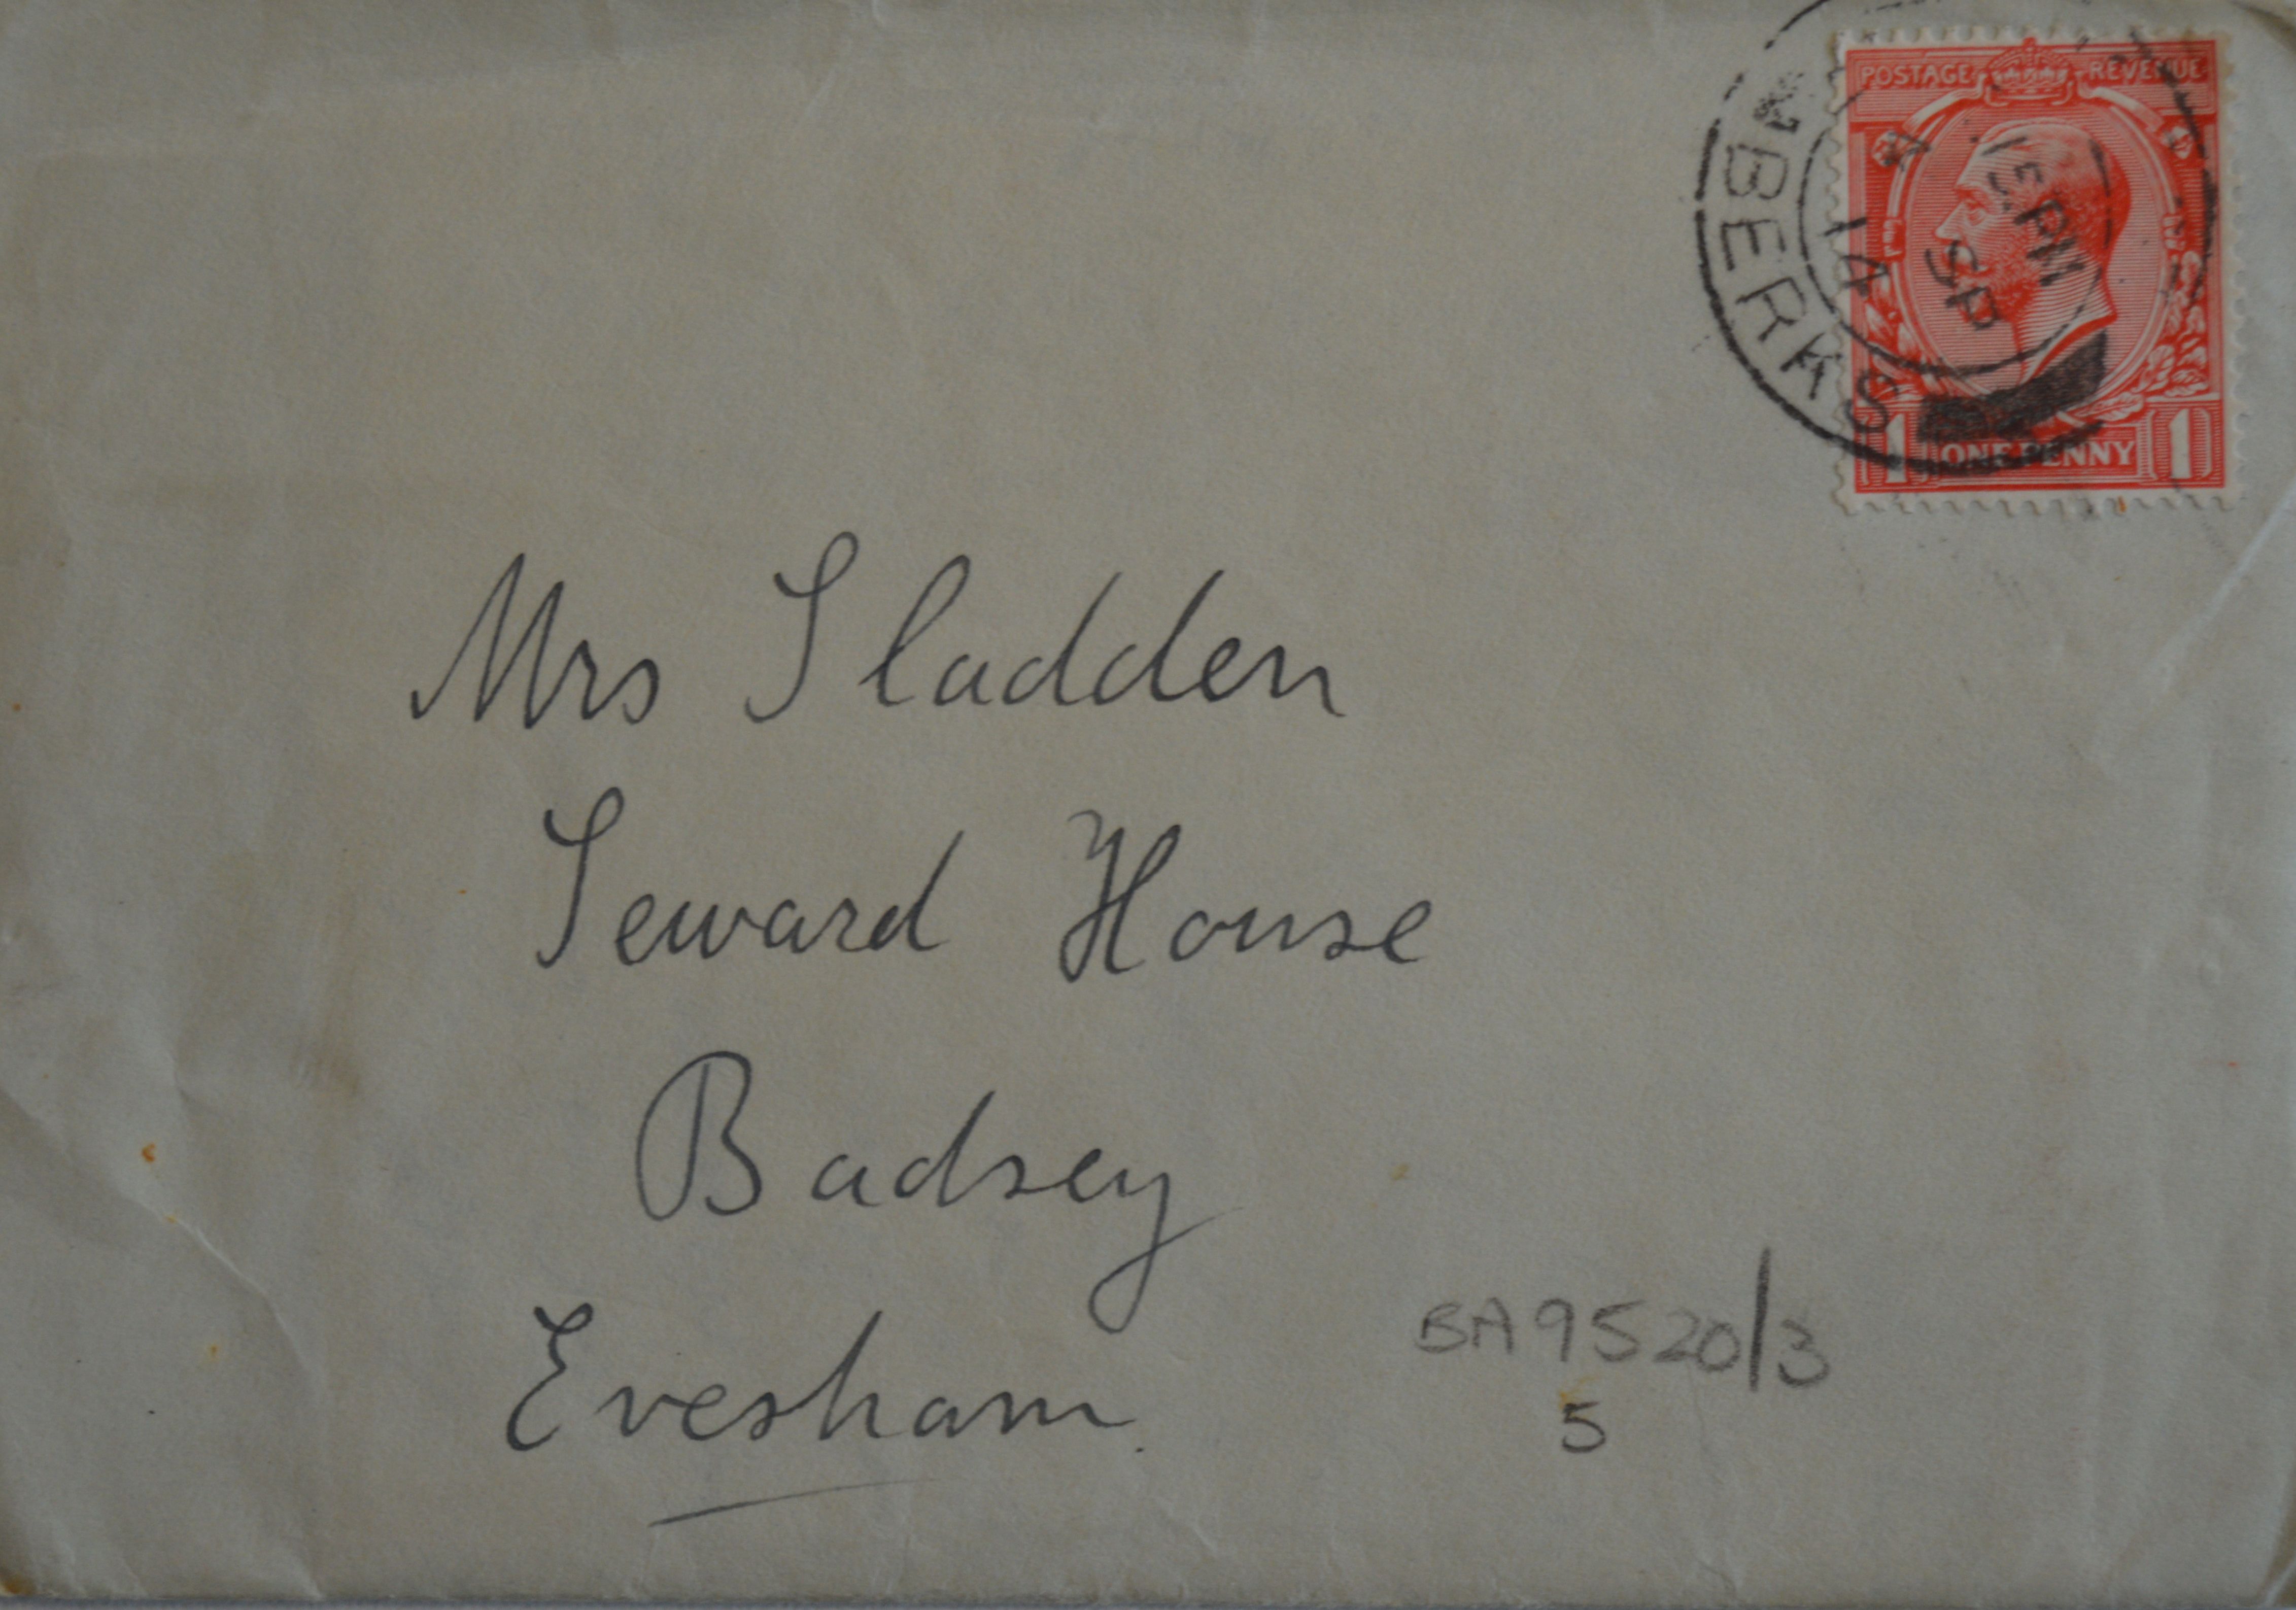 POSTAGE REVENUE
BERKS
PM
SP
14
1 ONE PENNY 1
Mrs Sladden
Seward House
Badsey
Evesham.
BA9520/3
5